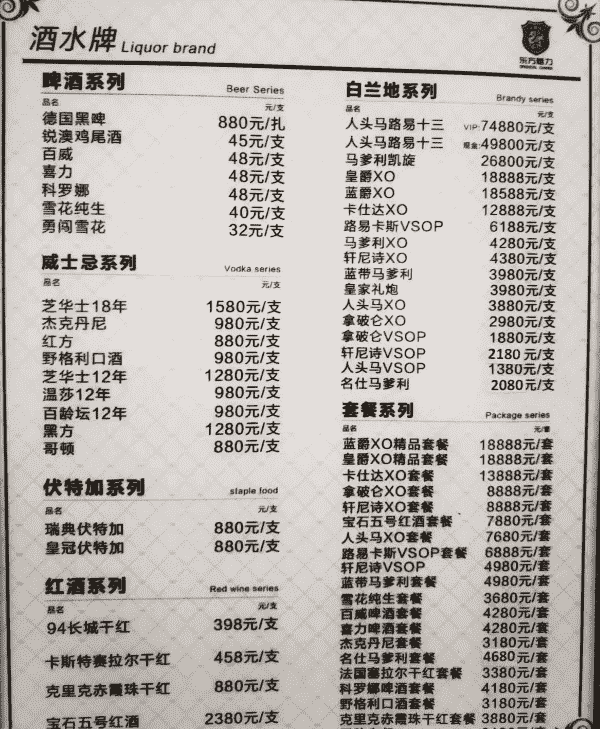 酒水牌 Liquor brand
东方魅力
啤酒系列 Beer Series
品名 元/支
德国黑啤 880元/扎
锐澳鸡尾酒 45元/支
百威 48元/支
喜力 48元/支
科罗娜 48元/支
雪花纯生 40元/支
勇闯雪花 32元/支
威士忌系列 Vodka series
品名 元/支
芝华士18年 1580元/支
杰克丹尼 980元/支
红方 880元/支
野格利口酒 980元/支
芝华士12年 1280元/支
温莎12年 980元/支
百龄坛12年 980元/支
黑方 1280元/支
哥顿 880元/支
伏特加系列 staple food
品名 元/支
瑞典伏特加 880元/支
皇冠伏特加 880元/支
红酒系列 Red wine series
品名 元/支
94长城干红 398元/支
卡斯特赛拉尔干红 458元/支
克里克赤霞珠干红 880元/支
宝石五号红酒 2380元/支
白兰地系列 Brandy series
品名 元/支
人头马路易十三 VIP:74880元/支
人头马路易十三 现金:49800元/支
马爹利凯旋 26800元/支
皇爵XO 18888元/支
蓝爵XO 18588元/支
卡仕达XO 12888元/支
路易卡斯VSOP 6188元/支
马爹利XO 4280元/支
轩尼诗XO 4380元/支
蓝带马爹利 3980元/支
皇家礼炮 3980元/支
人头马XO 3880元/支
拿破仑XO 2980元/支
拿破仑VSOP 1880元/支
轩尼诗VSOP 2180元/支
人头马VSOP 1380元/支
名仕马爹利 2080元/支
套餐系列 Package series
品名 元/套
蓝爵XO精品套餐 18888元/套
皇爵XO精品套餐 18888元/套
卡仕达XO套餐 13888元/套
拿破仑XO套餐 8888元/套
轩尼诗XO套餐 8888元/套
宝石五号红酒套餐 7880元/套
人头马XO套餐 7680元/套
路易卡斯VSOP套餐 6888元/套
轩尼诗VSOP 4980元/套
蓝带马爹利套餐 4980元/套
雪花纯生套餐 3680元/套
百威啤酒套餐 4280元/套
喜力啤酒套餐 4280元/套
杰克丹尼套餐 3180元/套
名仕马爹利套餐 4680元/套
法国塞拉尔干红套餐 3380元/套
科罗娜啤酒套餐 4180元/套
野格利口酒套餐 3180元/套
克里克赤霞珠干红套餐 3880元/套